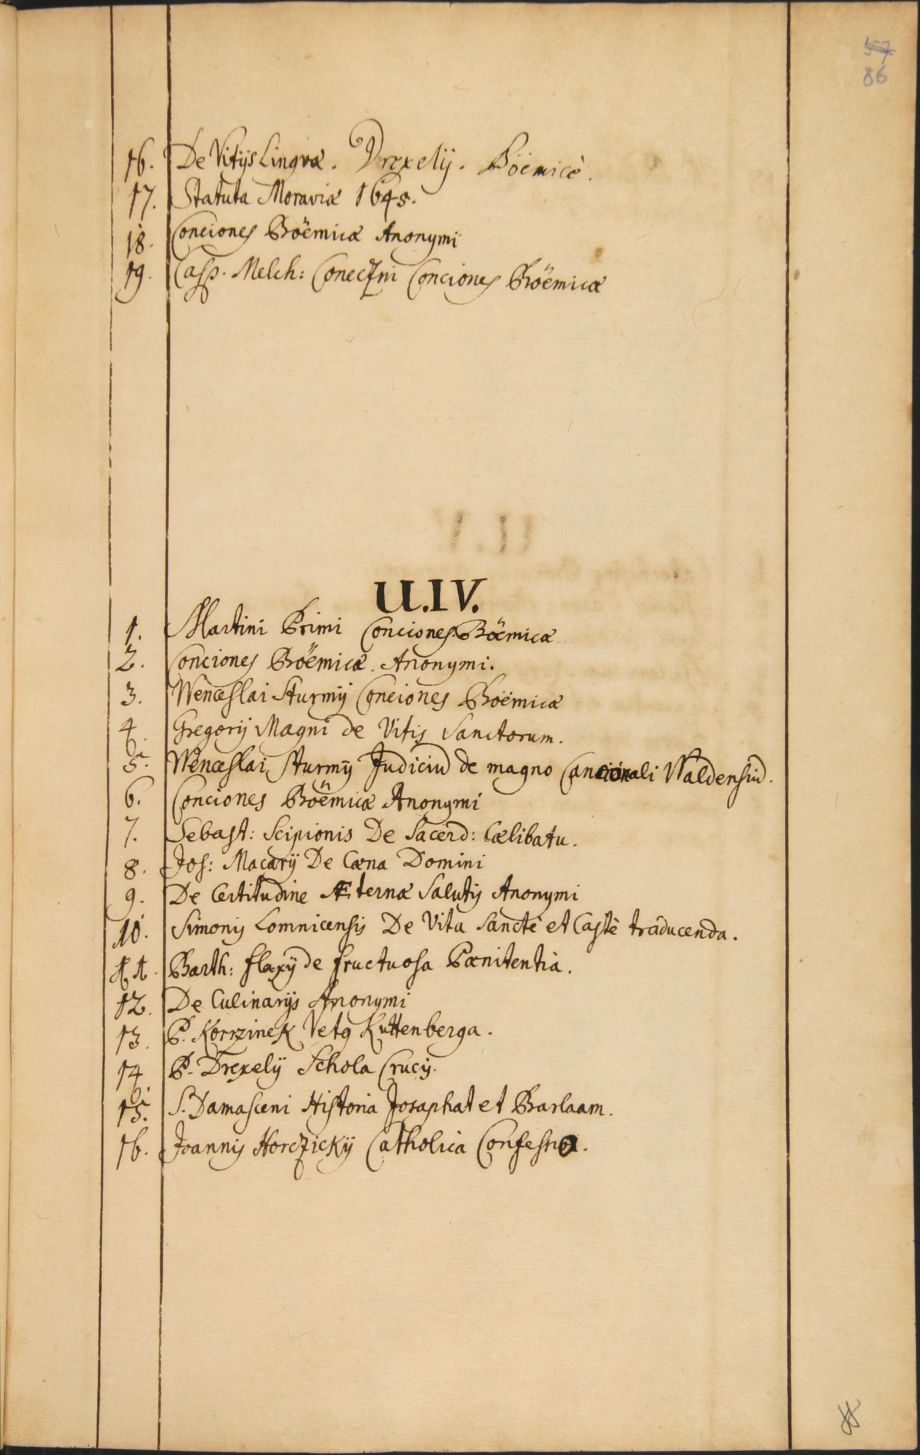 57
86
16. De Vitijs Linguæ. Drexelij. Böëmicè.
17. Statuta Moraviæ 1645.
18. Conciones Böëmicæ Anonymi
19. Casp. Melch: Coneczni Conciones Böëmicæ
U.IV.
1. Martini Primi Conciones Böëmicæ
2. Conciones Böëmicæ. Anonymi.
3. Wenceslai Sturmij Conciones Boëmicæ
4. Gregorij Magni de Vitis Sanctorum.
5. Wenceslai Sturmij Judiciū de magno Cancionali Waldensiū.
6. Conciones Böëmicæ Anonymi
7. Sebast: Scipionis De Sacerd: Cælibatu.
8. Jos: Macarij De Cæna Domini
9. De Certitudine Æternæ Salutis Anonymi
10. Simonis Lomnicensis De Vita Sanctè et Castè traducenda.
11. Barth: Flaxij de fructuosa Pænitentia.
12. De Culinarijs Anonymi
13. P. Korzinek Vetg Kuttenberga.
14. P. Drexelij Schola Crucis.
15. S. Damasceni Historia Josaphat et Barlaam.
16. Joannis Horczickij Catholica Confessio.